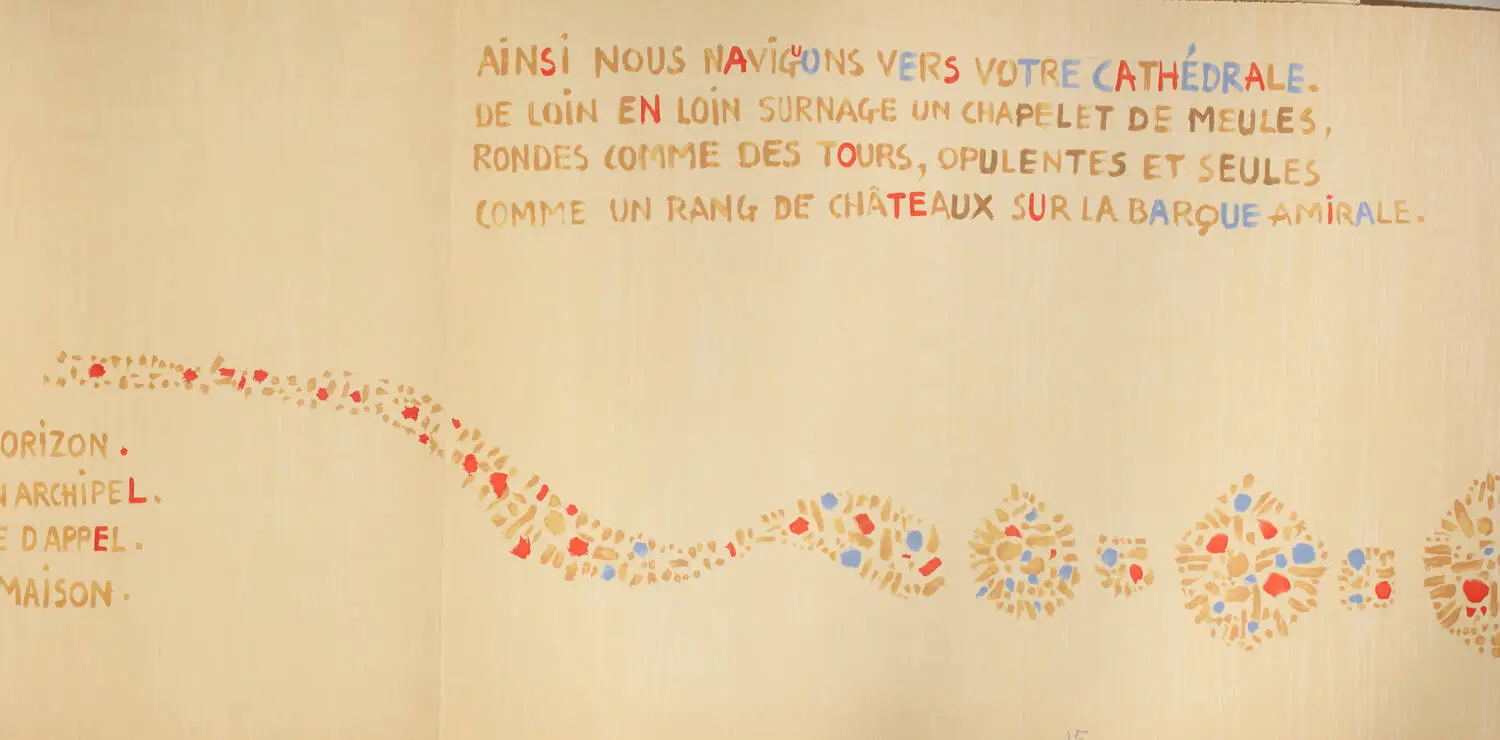 AINSI NOUS NAVIGUONS VERS VOTRE CATHÉDRALE.
DE LOIN EN LOIN SURNAGE UN CHAPELET DE MEULES,
RONDES COMME DES TOURS, OPULENTES ET SEULES
COMME UN RANG DE CHÂTEAUX SUR LA BARQUE AMIRALE.
ORIZON.
N ARCHIPEL.
E D APPEL.
MAISON.
15